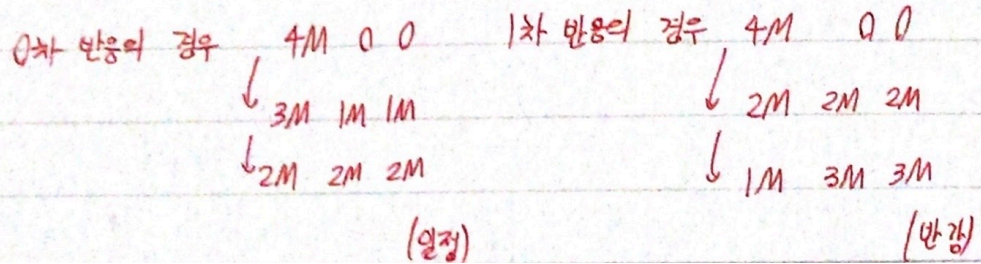 0차 반응의 경우 4M 0 0
↓ 3M 1M 1M
↓ 2M 2M 2M
(일정)
1차 반응의 경우 4M 0 0
↓ 2M 2M 2M
↓ 1M 3M 3M
(반감)